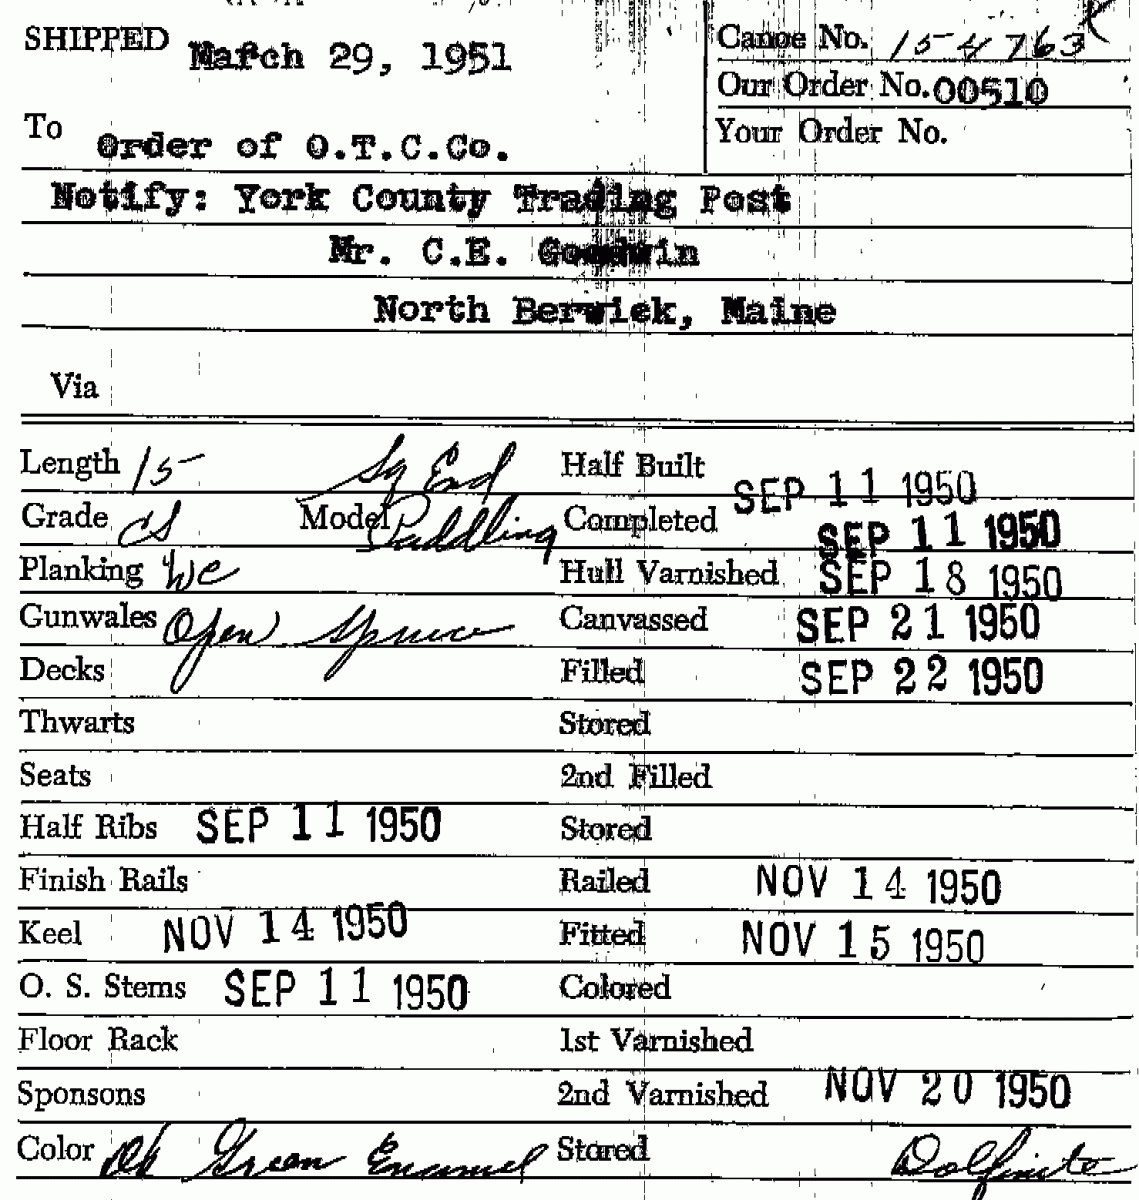 SHIPPED March 29, 1951
Canoe No. 154763
Our Order No. 00510
To Order of O.T.C.Co.
Your Order No.
Notify: York County Trading Post
Mr. C.E. Goodwin
North Berwick, Maine
Via
Length 15 Sq End Half Built SEP 11 1950
Grade CS Model Paddling Completed SEP 11 1950
Planking WC Hull Varnished SEP 18 1950
Gunwales Open Spruce Canvassed SEP 21 1950
Decks Filled SEP 22 1950
Thwarts Stored
Seats 2nd Filled
Half Ribs SEP 11 1950 Stored
Finish Rails Railed NOV 14 1950
Keel NOV 14 1950 Fitted NOV 15 1950
O. S. Stems SEP 11 1950 Colored
Floor Rack 1st Varnished
Sponsons 2nd Varnished NOV 20 1950
Color Dk Green Enamel Stored Dolfinite